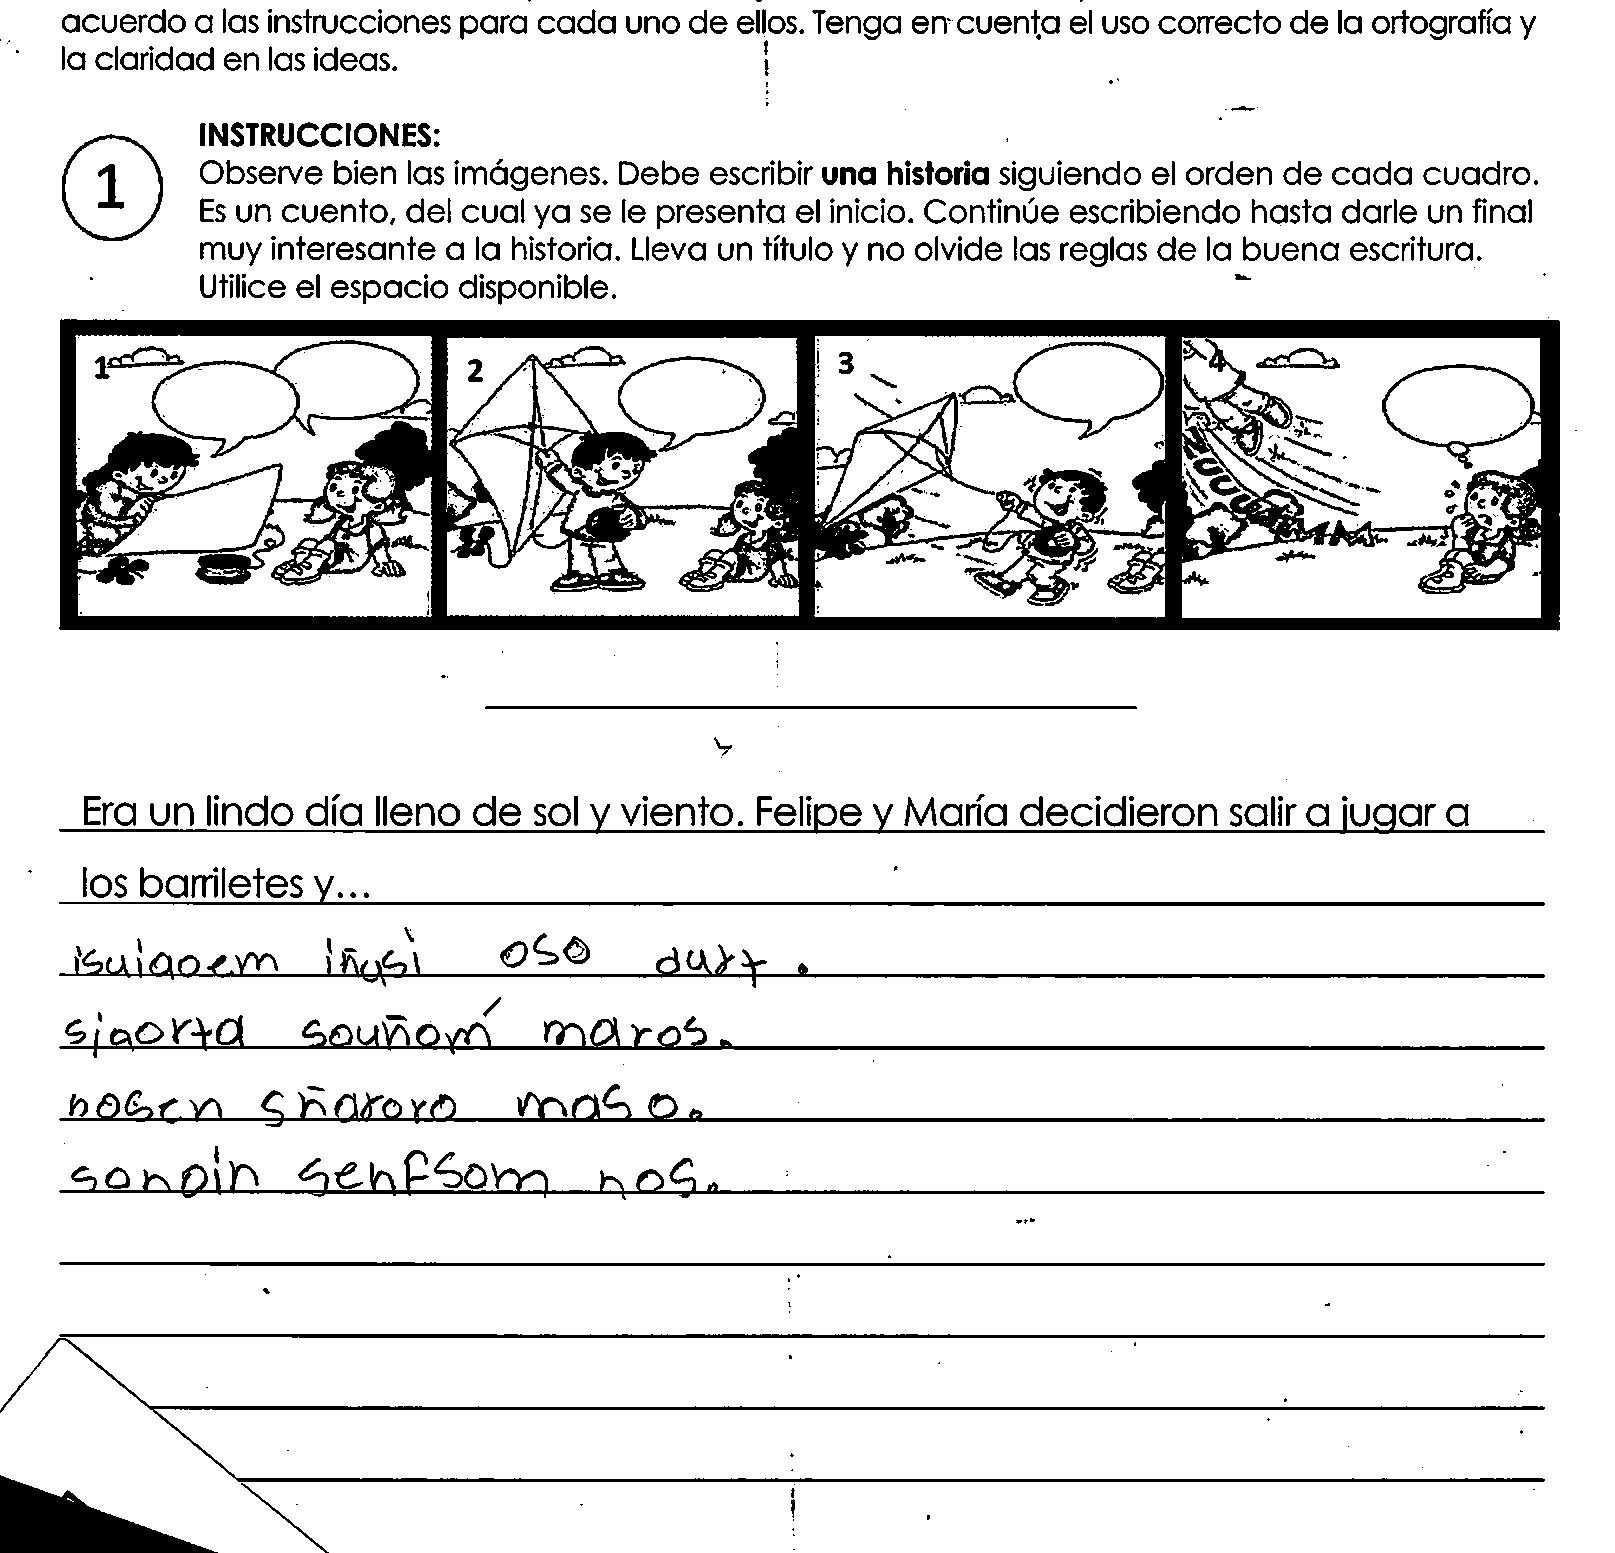 acuerdo a las instrucciones para cada uno de ellos. Tenga en cuenta el uso correcto de la ortografía y
la claridad en las ideas.
1
INSTRUCCIONES:
Observe bien las imágenes. Debe escribir una historia siguiendo el orden de cada cuadro.
Es un cuento, del cual ya se le presenta el inicio. Continúe escribiendo hasta darle un final
muy interesante a la historia. Lleva un título y no olvide las reglas de la buena escritura.
Utilice el espacio disponible.
1 2 3 4
Era un lindo día lleno de sol y viento. Felipe y María decidieron salir a jugar a
los barriletes y...
oso
maros.
maso.
nos.